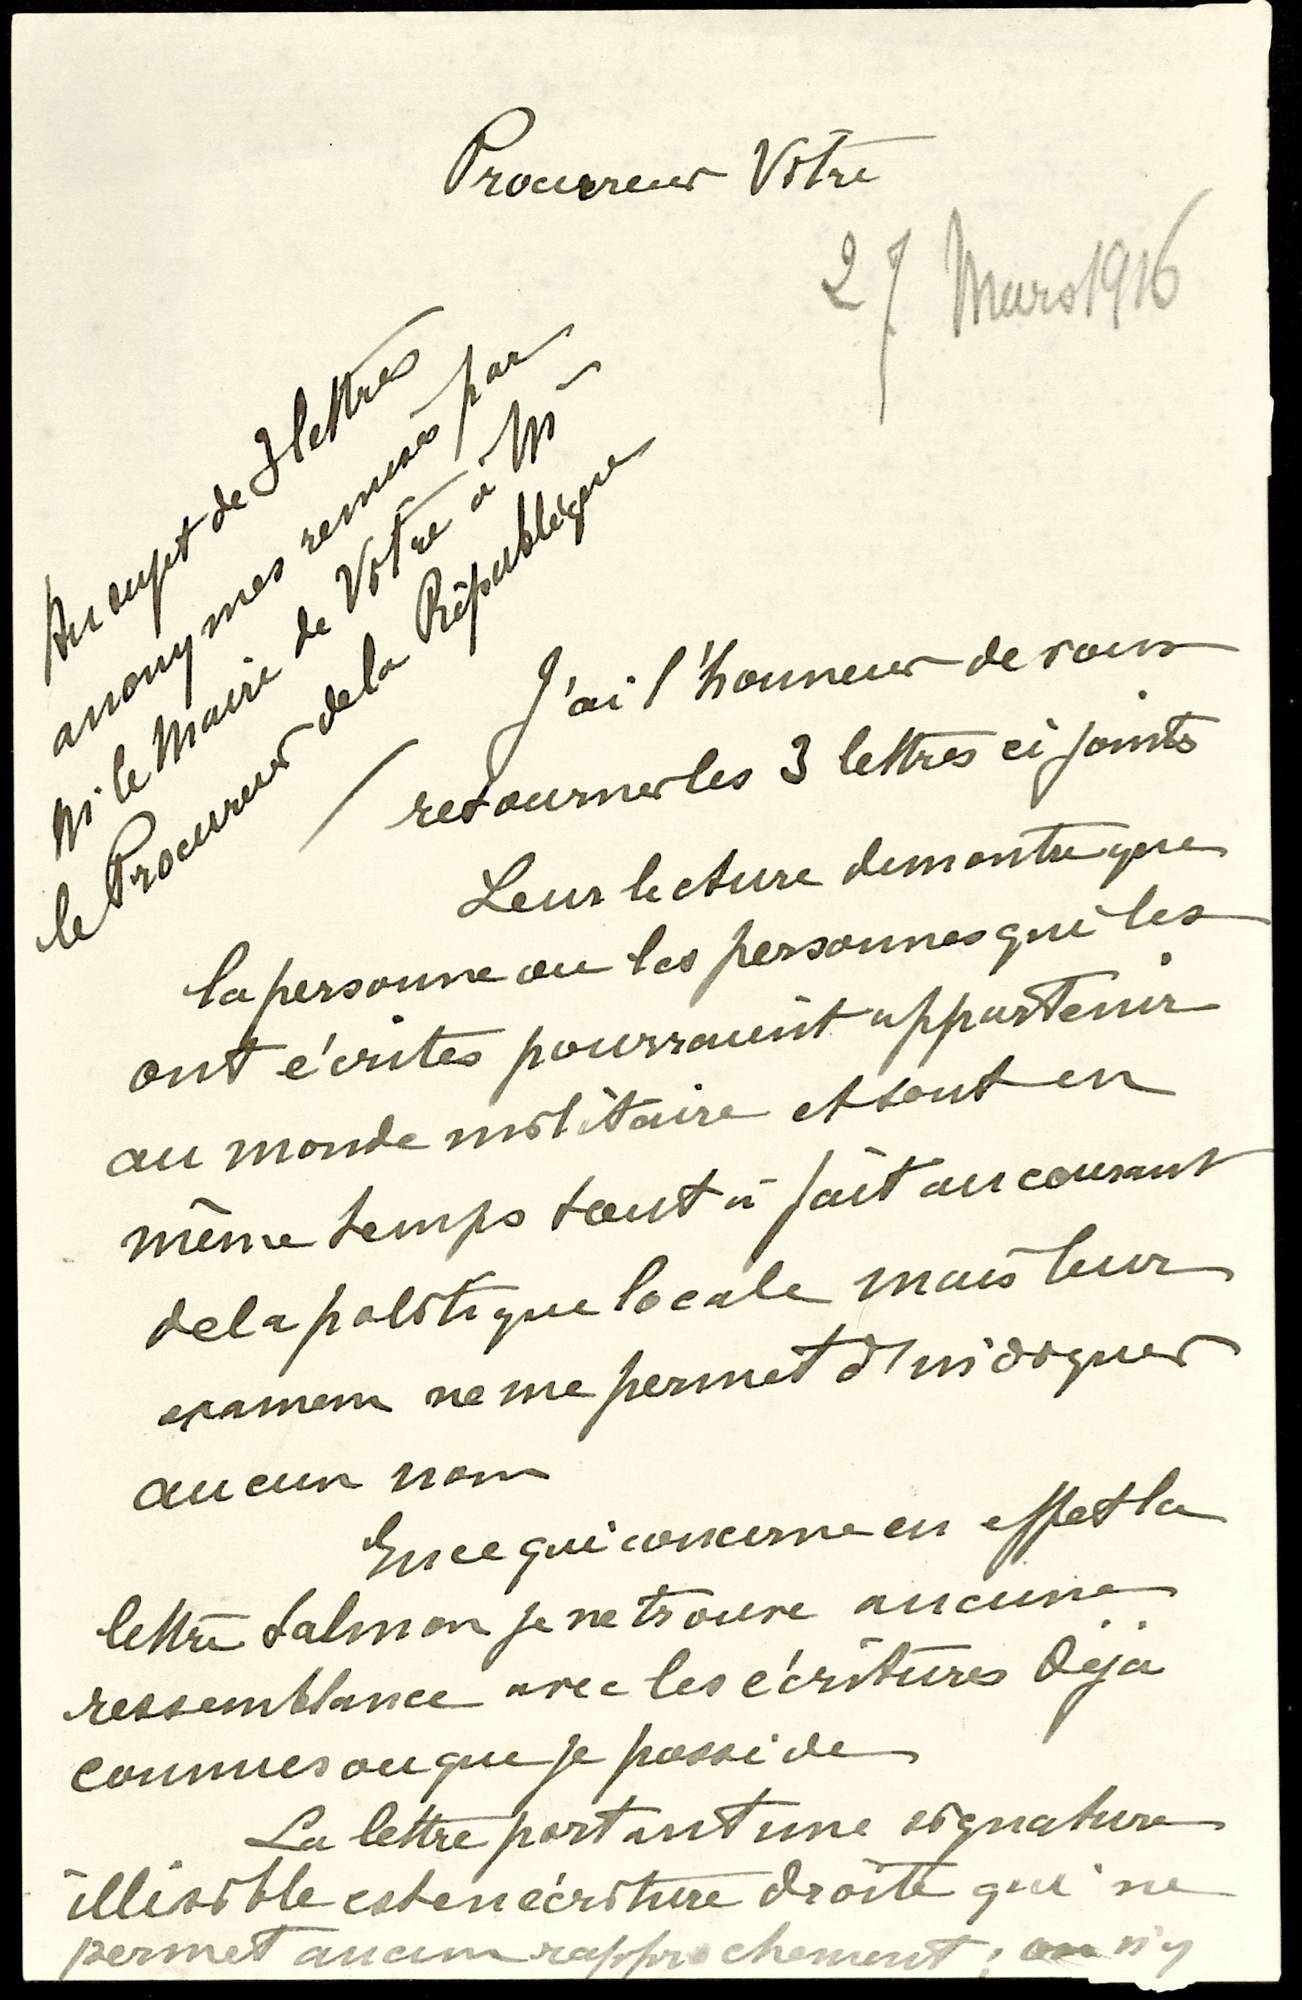 Procureur Vitré
27 Mars 1916
Au sujet de 3 lettres
anonymes remises par
M le Maire de Vitré à M
le Procureur de la République
J'ai l'honneur de vous
retourner les 3 lettres ci joints
Leur lecture demontre que
la personne ou les personnes qui les
ont écrites pourraient appartenir
au monde militaire et sont en
même temps tout à fait au courant
de la politique locale mais leur
examen ne me permet d'indiquer
aucun nom
En ce qui concerne en effet la
lettre Salmon je ne trouve aucune
ressemblance avec les écritures déjà
connues ou que je posside
La lettre portant une signature
illisible est en écriture droite qui ne
permet aucun rapprochement ; on n'y